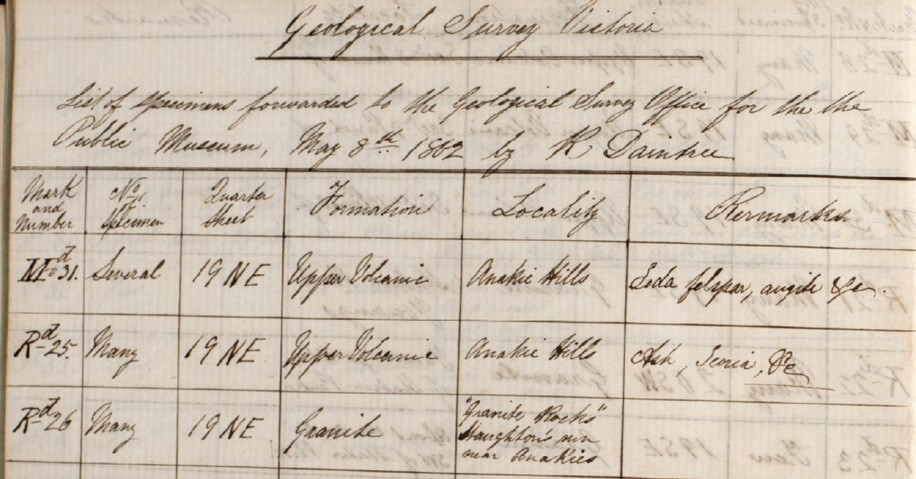 Geological Survey Victoria
List of specimens forwarded to the Geological Survey Office for the the
Public Museum, May 8th 1862 by R Daintree
Mark and Number | No. of Specimen | Quarter Sheet | Formation | Locality | Remarks
Md 31. | Several | 19 NE | Upper Volcanic | Anakie Hills | Soda felspar, augite &c.
Rd 25. | Many | 19 NE | Upper Volcanic | Anakie Hills | Ash, Scoria, &c
Rd 26 | Many | 19 NE | Granite | "Granite Rocks" Staughtons run near Anakies